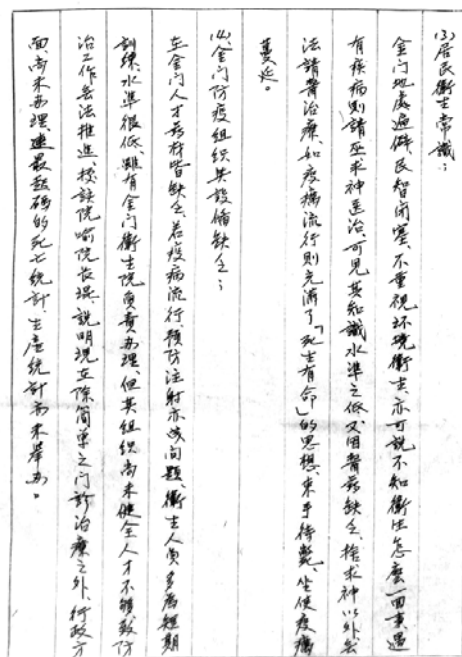 (3)居民衛生常識：
金门地處遍僻、民智閉塞、不重視环境衛生、亦可說不知衛生怎麼一回事、遇
有疾病則請巫求神医治、可見其知識水準之低、又因醫葯缺乏、捨求神以外無
法請醫治療、如疫癘流行則充滿了「死生有命」的思想、束手待斃、坐使疫癘
蔓延。
(4)金门防疫組织与設備缺乏：
在金门人才葯材皆缺乏、若疫病流行、預防注射亦成问題、衛生人员多為短期
訓練、水準很低、雖有金门衛生院負責办理、但其組织尚未健全、人才不夠、致防
治工作無法推進、按該院喻院長堤說明現在除简單之门診治療之外、行政方
面、尚未办理、連最起碼的死亡統計、生產統計尚未舉办。